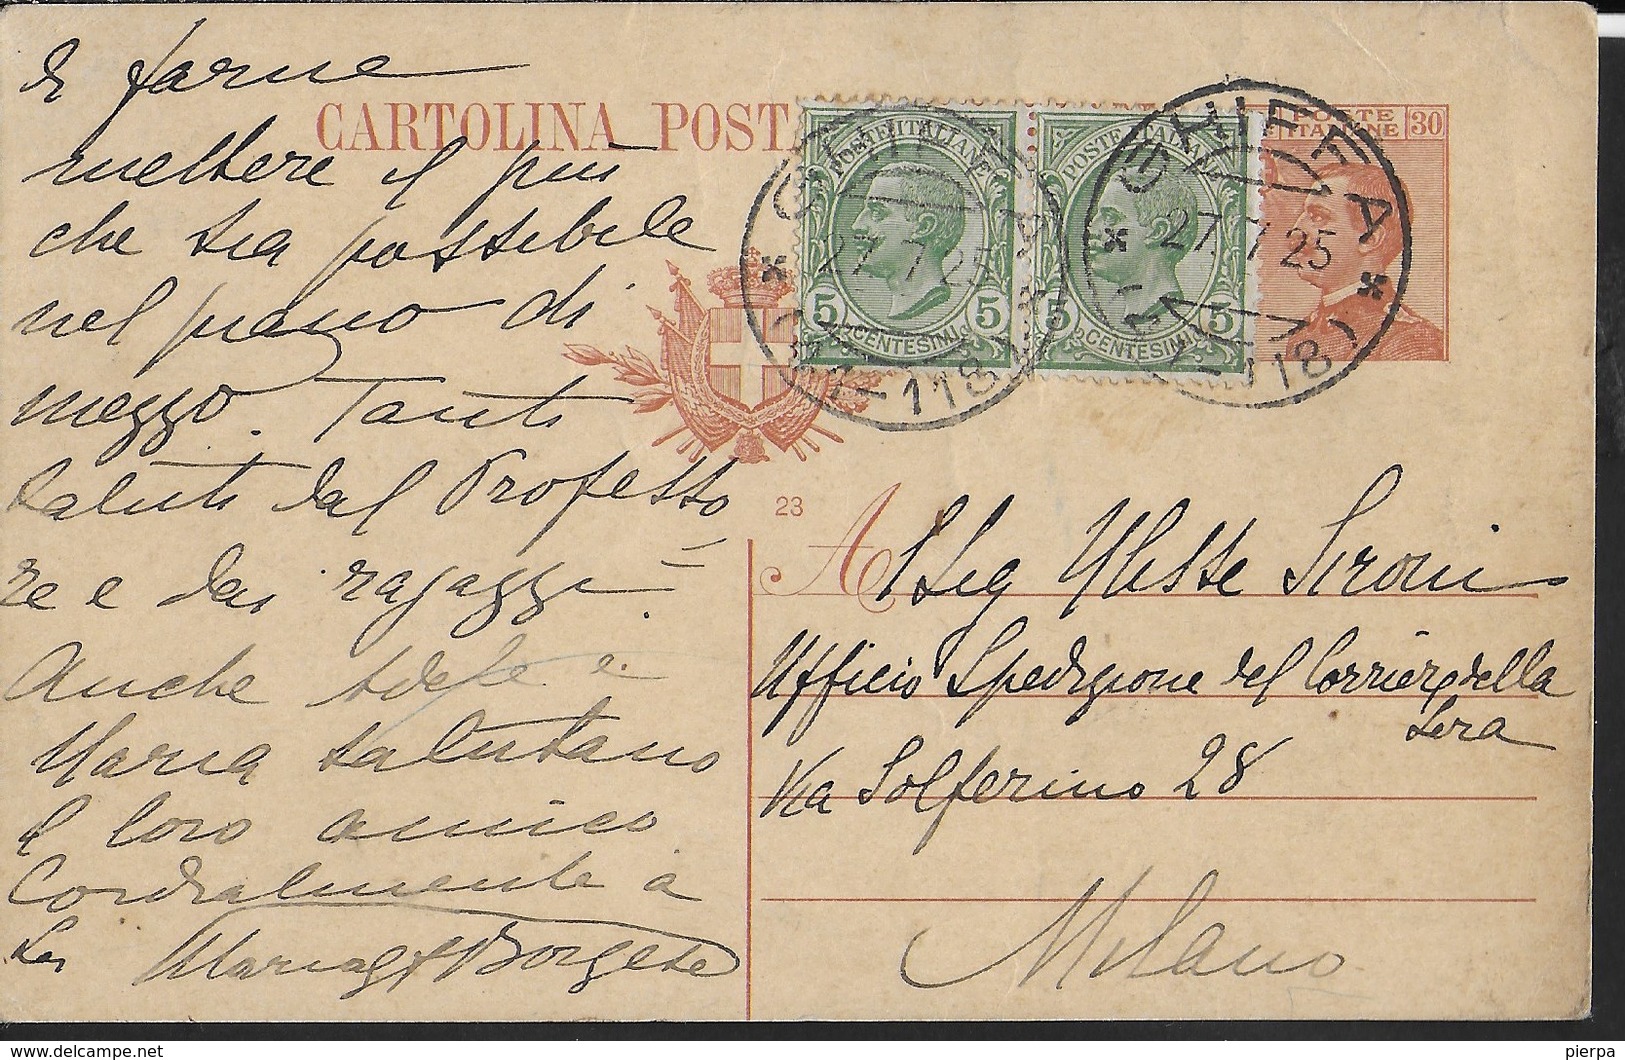 di farne
mettere il più
che sia possibile
nel piano di
mezzo. Tanti
saluti dal Professo
re e dai ragazzi.
Anche Adele e
Maria salutano
il loro amico
Cordialmente a
Lei Maria Borgese
CARTOLINA POST
POSTE ITALIANE
5 CENTESIMI 5
POSTE ITALIAN
5 CENTESIMI 5
POSTE ITALIANE 30
GHIFFA
27.7.25
GHIFFA
27.7.25
23
A
Al Sig Ulisse Sironi
Ufficio Spedizione del Corriere della
Sera
Via Solferino 28
Milano
pierpa